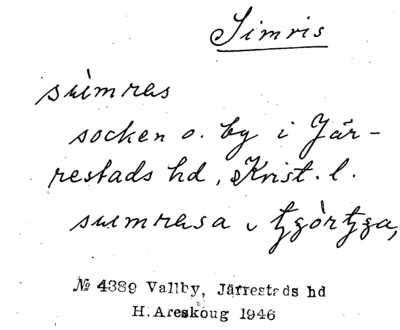 Simris
sìmras
socken o. by i Jär-
restads hd, Krist. l.
№ 4389 Vallby, Järrestads hd
H. Areskoug 1946